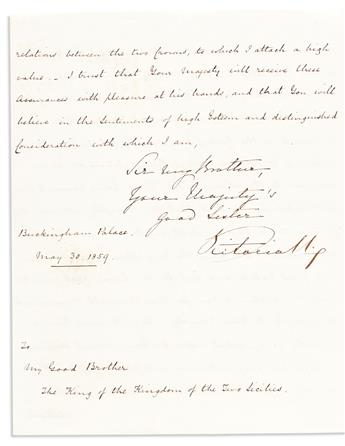 relations between the two Crowns, to which I attach a high
value. _ I trust that Your Majesty will receive these
Assurances with pleasure at his hands, and that You will
believe in the Sentiments of high Esteem and distinguished
Consideration with which I am,
Sir my Brother,
Your Majesty's
Good Sister
Buckingham Palace.
Victoria R
May 30. 1859.
To
My Good Brother
The King of the Kingdom of the Two Sicilies.